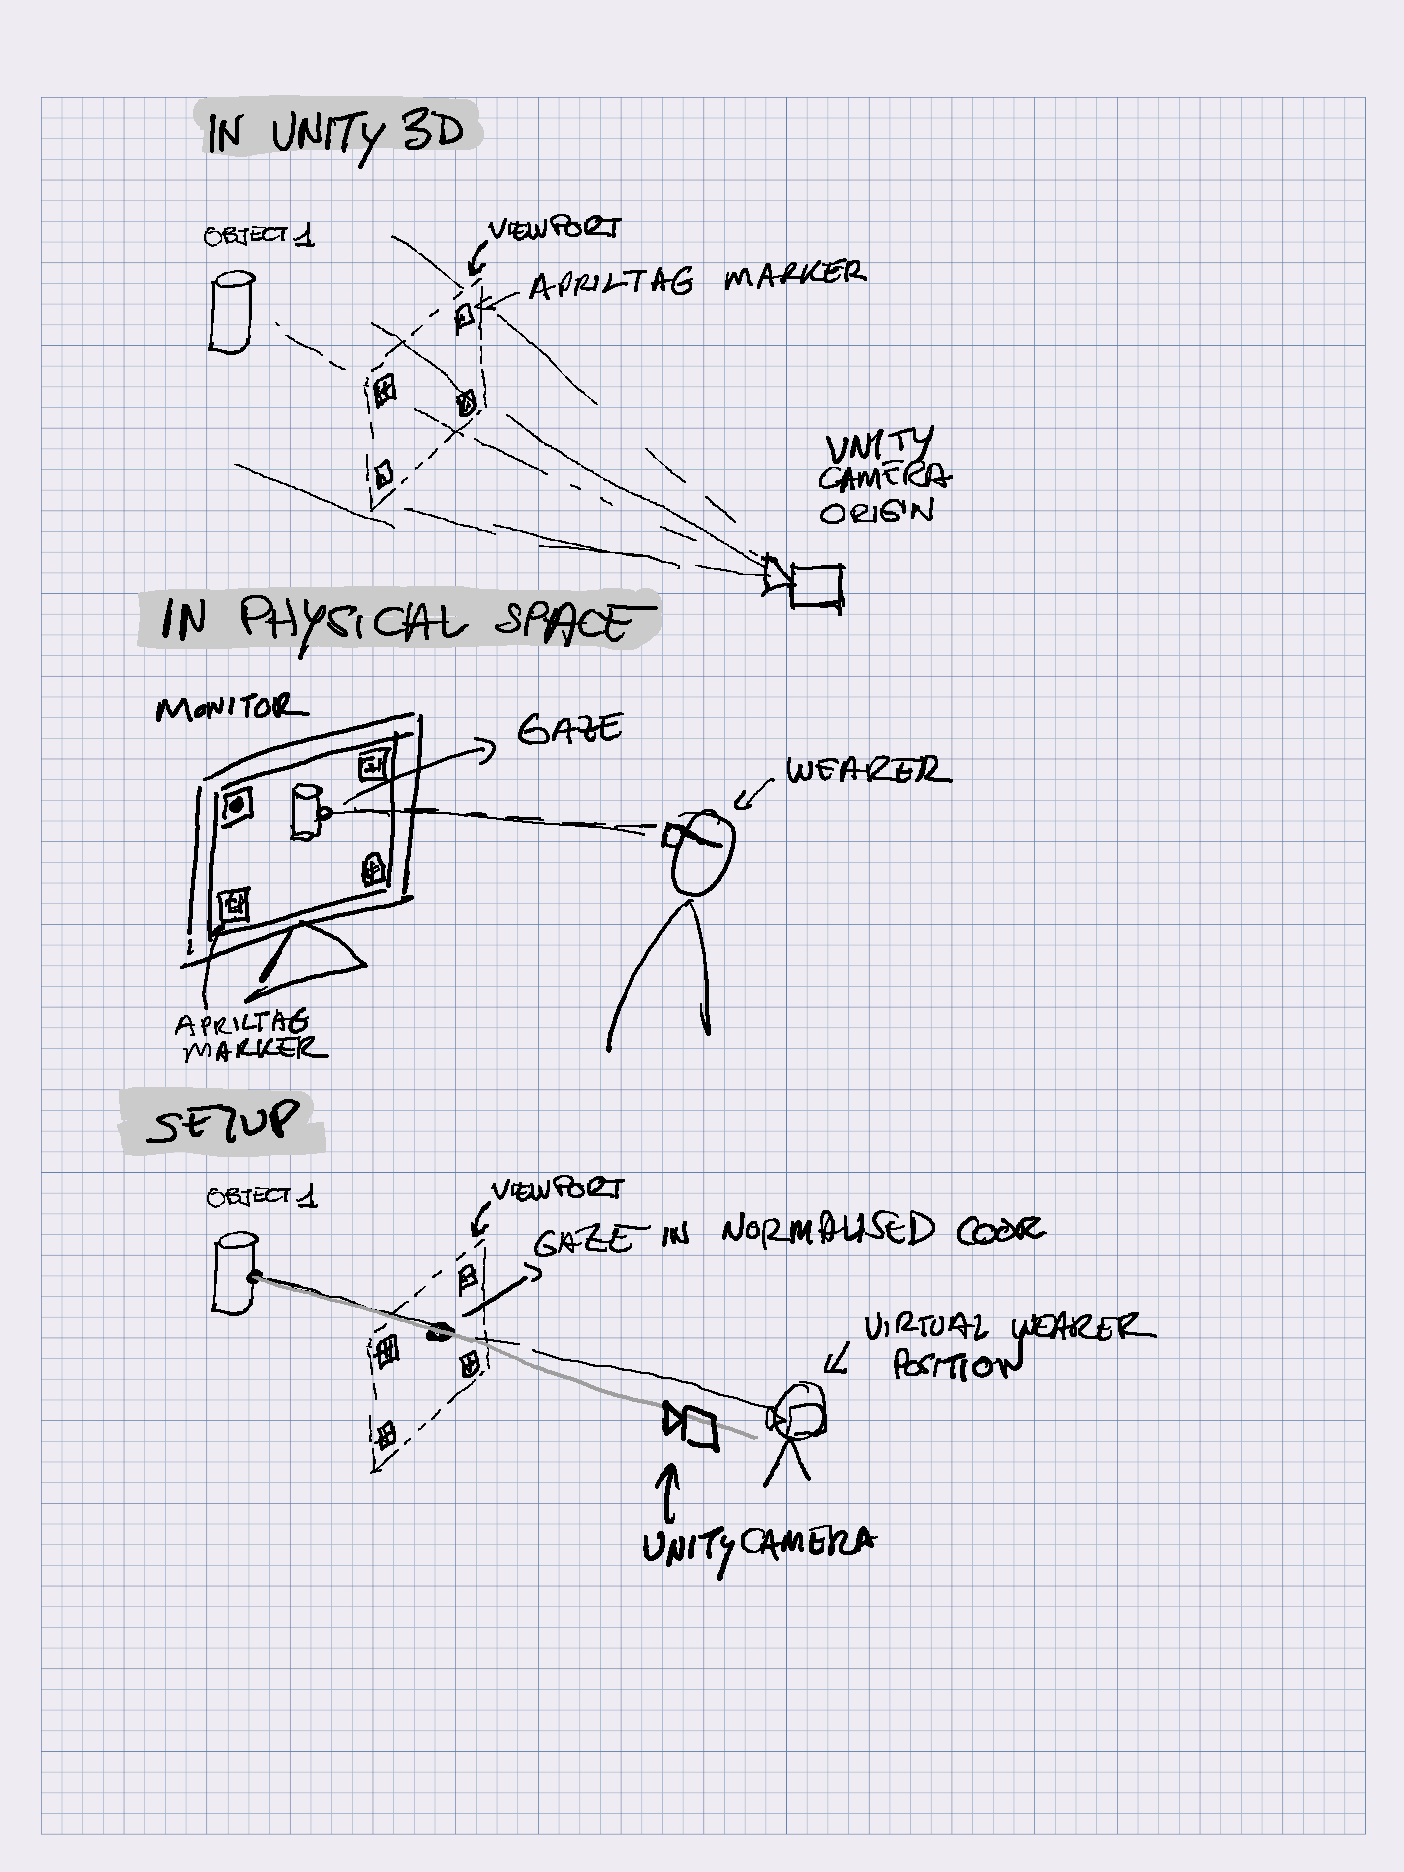 IN UNITY 3D
OBJECT 1
VIEWPORT
APRILTAG MARKER
UNITY
CAMERA
ORIGIN
IN PHYSICAL SPACE
MONITOR
GAZE
WEARER
APRILTAG
MARKER
SETUP
OBJECT 1
VIEWPORT
GAZE IN NORMALISED COOR
VIRTUAL WEARER
POSITION
UNITY CAMERA